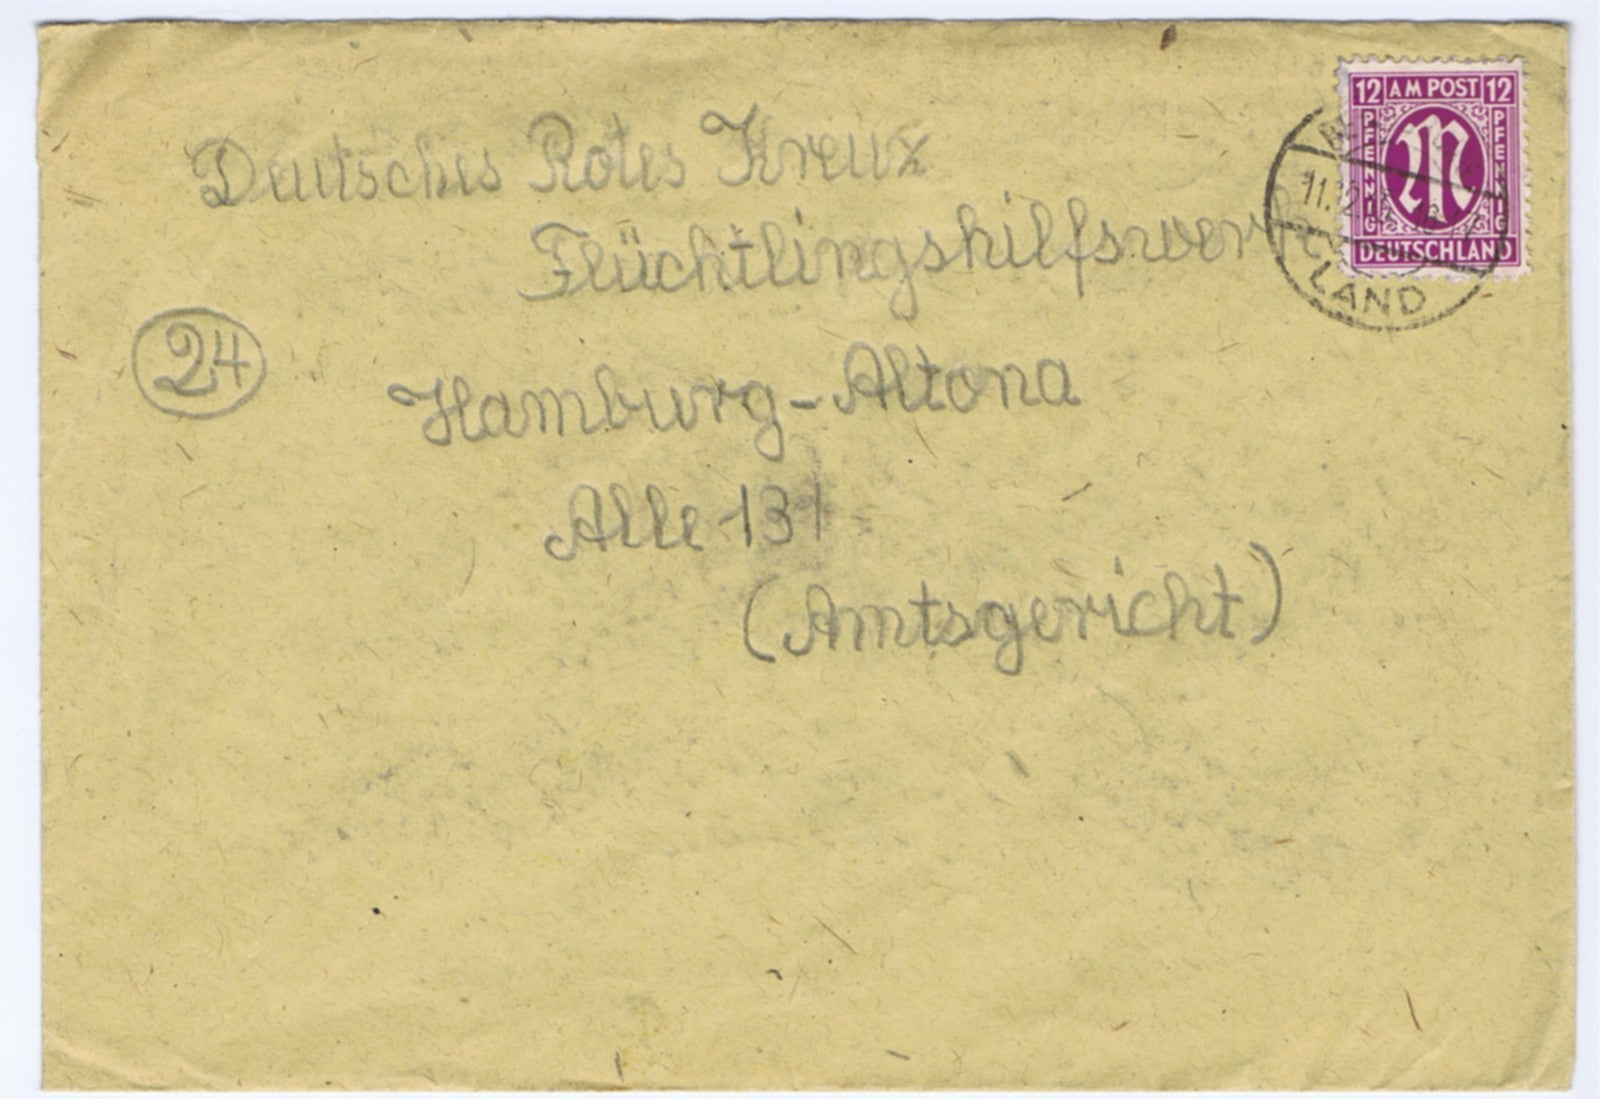 12 AM POST 12
PFENNIG PFENNIG
DEUTSCHLAND
LAND
Deutsches Rotes Kreux
Flüchtlingshilfswerk
24
Hamburg-Altona
Alle 131
(Amtsgericht)